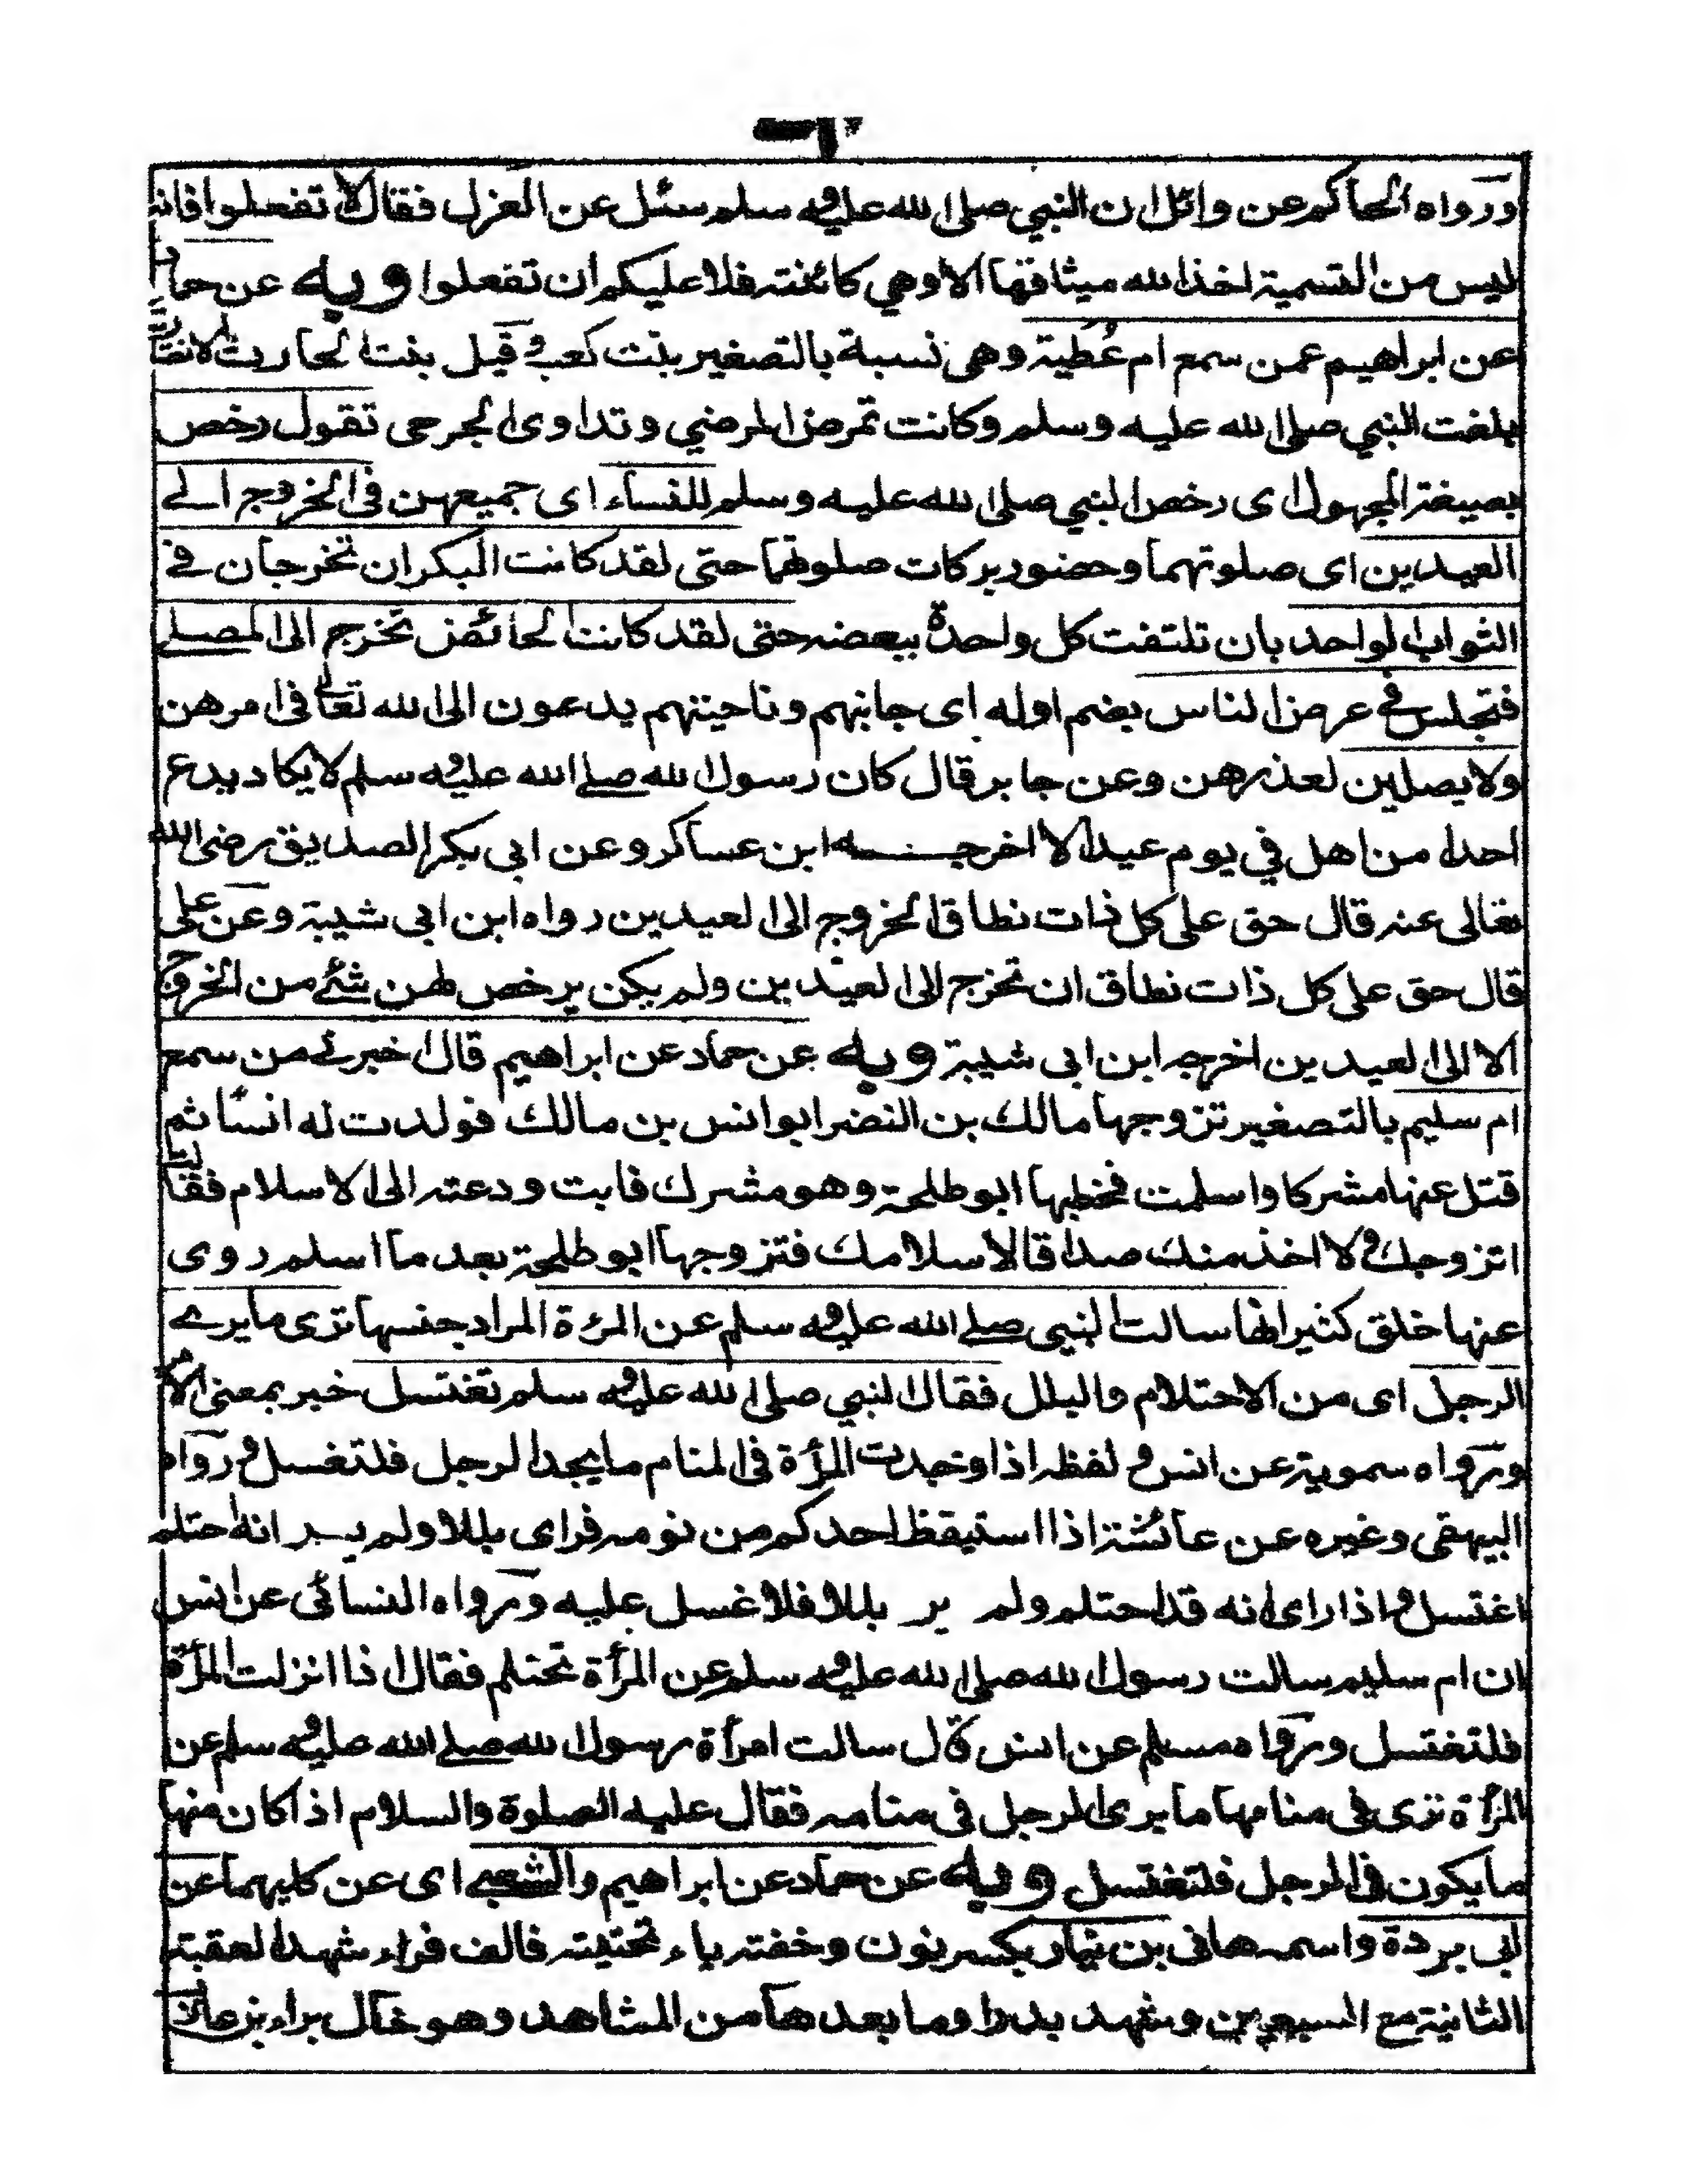 ورواه الحاكم عن واثل ان النبي صلى الله عليه و سلم سئل عن العزل فقال لا تفعلوا فانه
ليس من القسمية اخذ الله ميثاقها الا وهي كائنة فلا عليكم ان تفعلوا وبه عن حماد
عن ابراهيم عمن سمع ام عُطية وهي نسبة بالتصغير بنت كعب و قيل بنت الحارث الانصارية
بلغت النبي صلى الله عليه وسلم وكانت تمرض المرضي وتداوى الجرحى تقول رخص
بصيغة المجهول اى رخص النبي صلى الله عليه وسلم للنساء اى جميعهن فى الخروج الے
العيدين اى صلوتهما وحضور بركات صلوتهما حتى لقد كانت البكران تخرجان فے
الثواب الواحد بان تلتفت كل واحدة ببعضه حتى لقد كانت الحائض تخرج الى المصلے
فتجلس فى عرض الناس بضم اوله اى جانبهم وناحيتهم يدعون الى الله تعالى فى امرهن
ولا يصلين لعذرهن وعن جابر قال كان رسول الله صلے الله عليه و سلم لا يكاد يدع
احدا من اهل في يوم عيد الا اخرجه ابن عساكر وعن ابى بكر الصديق رضى الله
تعالى عنه قال حق على كل ذات نطاق الخروج الى العيدين رواه ابن ابى شيبة وعن على
قال حق على كل ذات نطاق ان تخرج الى العيدين ولم يكن يرخص لهن شئے من الخروج
الا الى العيدين اخرجه ابن ابى شيبة وبه عن حماد عن ابراهيم قال اخبرنے من سمع
ام سليم بالتصغير تزوجها مالك بن النضر ابو انس بن مالك فولدت له انسًا ثم
قتل عنها مشركا واسلمت فخطبها ابو طلحة وهو مشرك فابت ودعته الى الاسلام فقالت
اتزوجك و لا اخذ منك صداقا الا سلامك فتزوجها ابو طلحة بعد ما اسلم روى
عنها خلق كثير انها سالت النبى صلے الله عليه و سلم عن المرءة المراد جنسها ترى ما يرے
الرجل اى من الاحتلام والبلل فقال النبي صلى الله عليه و سلم تغتسل خبر بمعنى الامر
ورواه سموية عن انس و لفظه اذا وجدت المرأة فى المنام ما يجد الرجل فلتغسل و رواه
البيهقى وغيره عن عائشة اذا استيقظ احدكم من نومه فراى بللا ولم ير انه احتلم
اغتسل و اذا راى انه قد احتلم ولم ير بللا فلا غسل عليه ورواه النسائى عن انس
ان ام سليم سالت رسول الله صلى الله عليه و سلم عن المرأة تحتلم فقال اذا انزلت المرأة
فلتغتسل ورواه مسلم عن انس قال سالت امرأة رسول الله صلے الله عليه و سلم عن
المرأة ترى فى منامها ما يرى الرجل فى منامه فقال عليه الصلوة والسلام اذا كان منها
ما يكون فى الرجل فلتغتسل وبه عن حماد عن ابراهيم والشعبے اى عن كليهما عن
ابى بردة واسمه هانى بن نيار بكسر نون وخفته ياء تحتيته فالف فراء شهد العقبة
الثانية مع السبعين وشهد بدرا وما بعدها من المشاهد وهو خال براء بن عازب